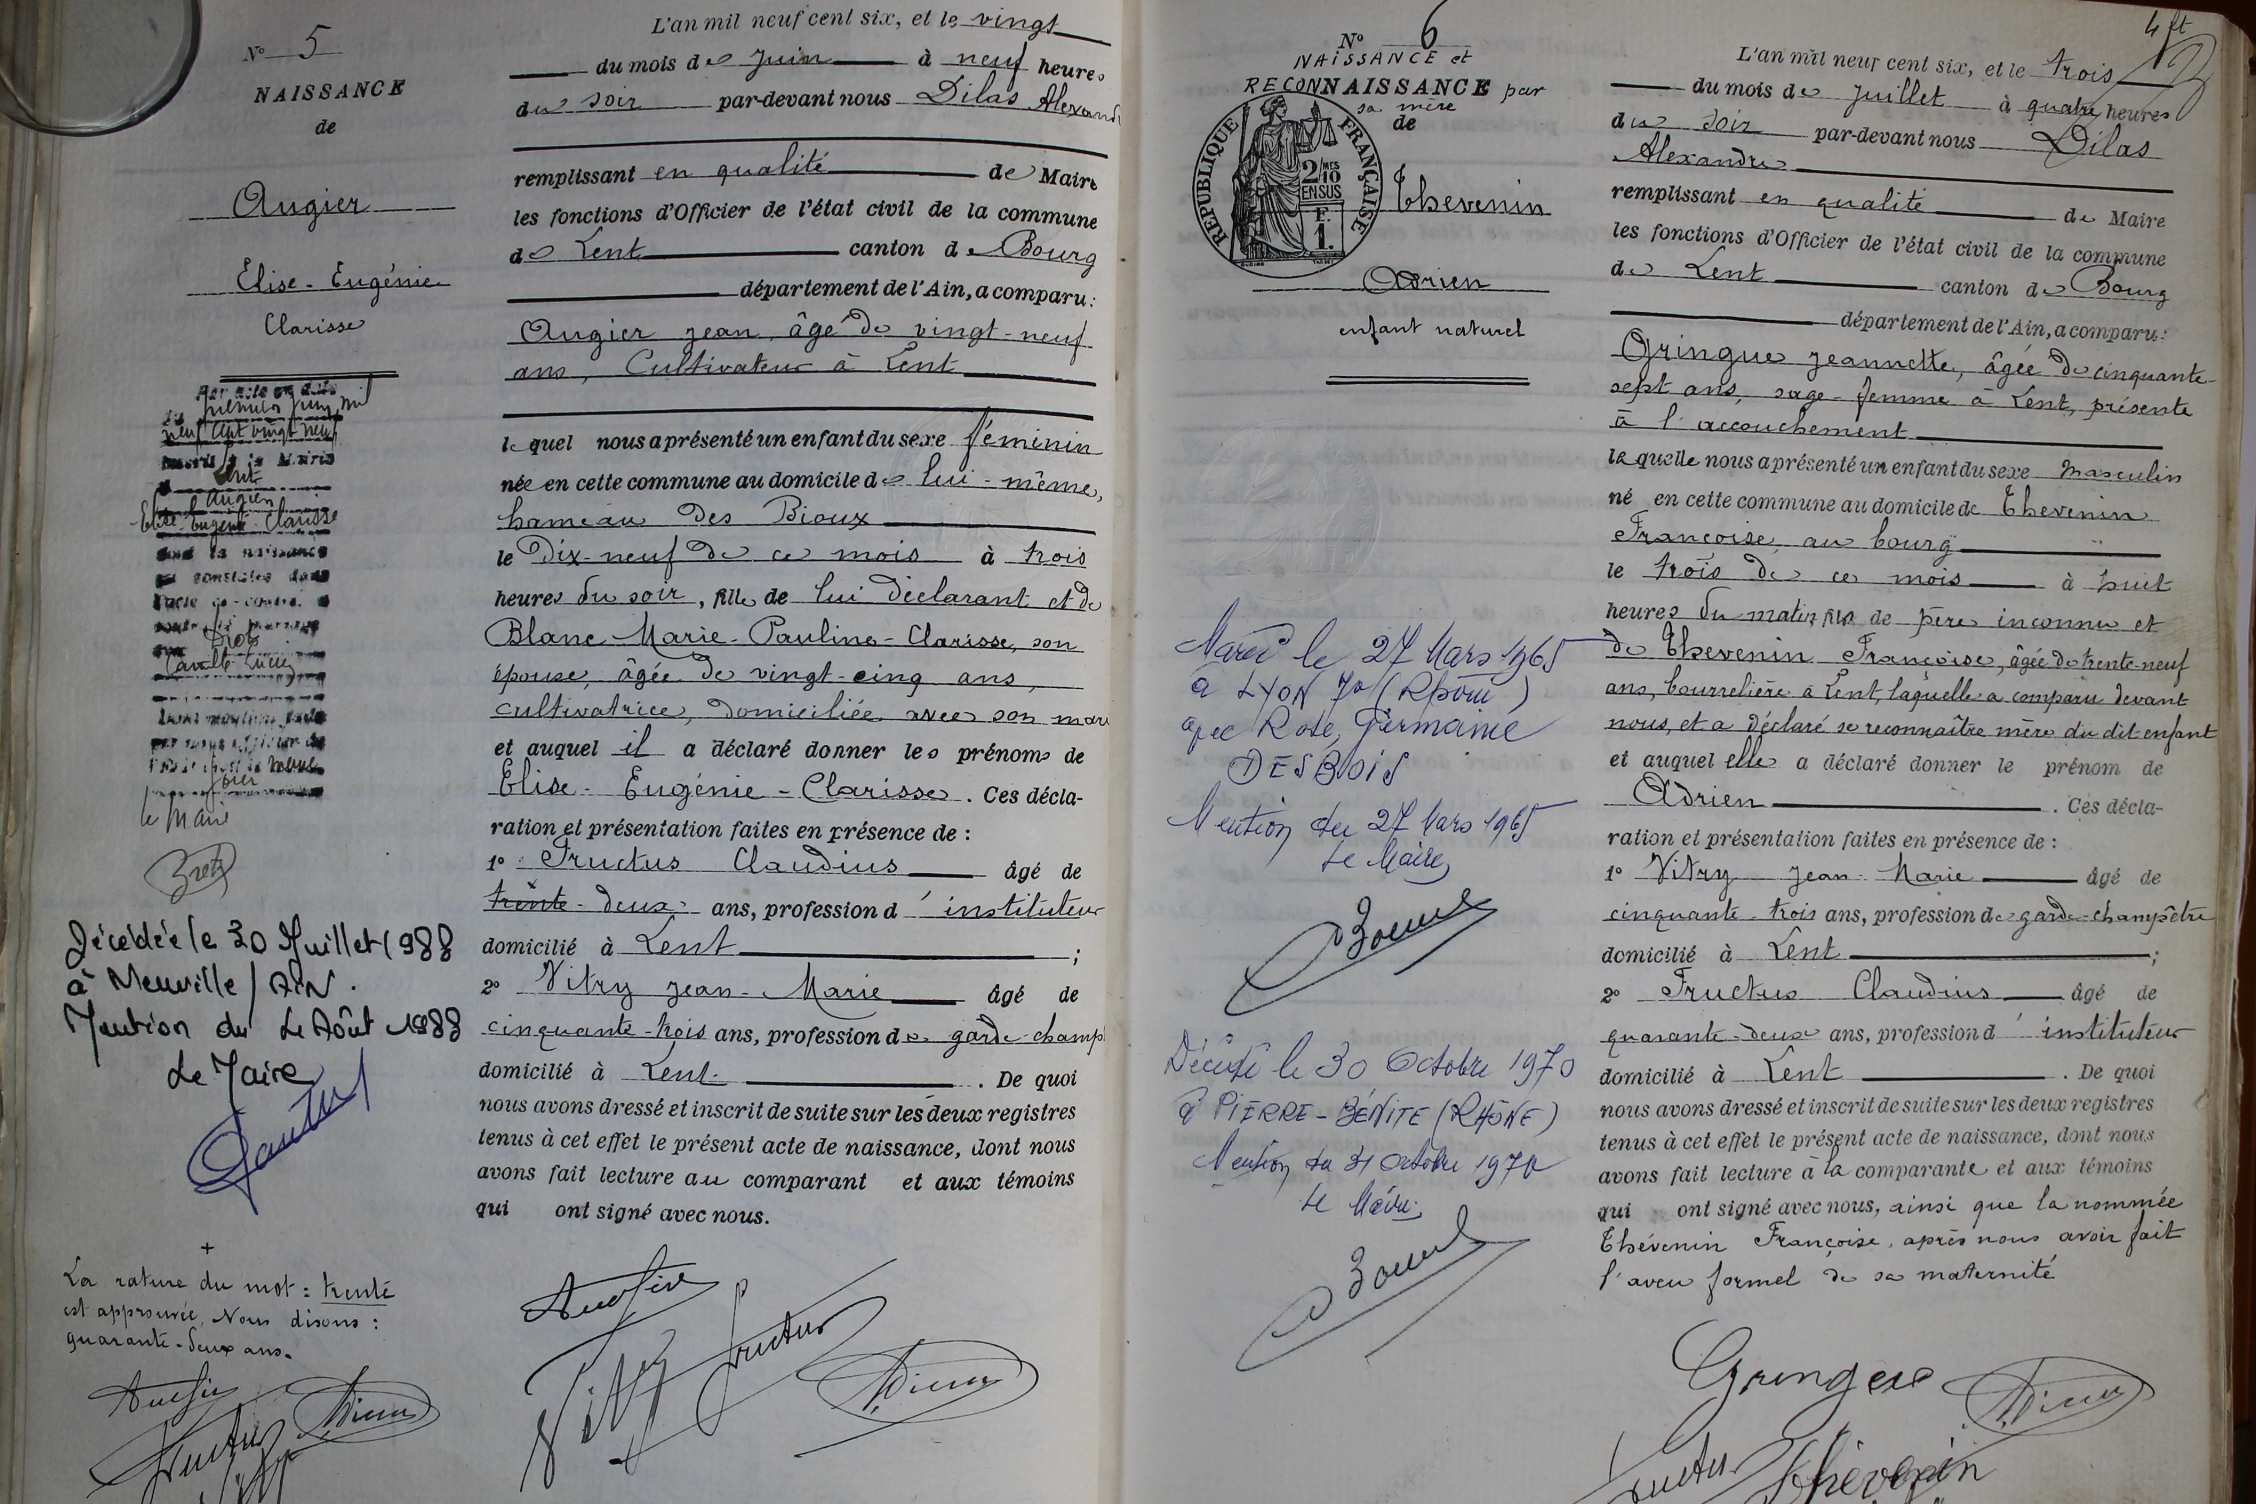 N° 5
NAISSANCE
de
Augier
Elise-Eugénie
Clarisse
Par acte en date
du premier juin mil
neuf cent vingt neuf
inscrit à la Mairie
Lent
Augier
Elise-Eugénie-Clarisse
dont la naissance
est constatée dans
l'acte ci-contre a
Camille Lucien
le Maire
Décédée le 30 Juillet 1988
à Neuville / AIN.
Mention du Août 1988
Le Maire
+
La rature du mot : trente
est approuvée. Nous disons :
quarante-deux ans.
Fructus
L'an mil neuf cent six, et le vingt
du mois de Juin à neuf heures
du soir par-devant nous Dilas
remplissant en qualité de Maire
les fonctions d'Officier de l'état civil de la commune
de Lent canton de Bourg
département de l'Ain, a comparu :
Augier Jean, âgé de vingt-neuf
ans, Cultivateur à Lent
lequel nous a présenté un enfant du sexe féminin
née en cette commune au domicile de lui-même,
hameau des Bioux
le Dix-neuf de ce mois à trois
heures du soir, fille de lui déclarant et de
Blanc Marie-Pauline-Clarisse, son
épouse, âgée de vingt-cinq ans,
cultivatrice, domiciliée avec son mari
et auquel il a déclaré donner les prénoms de
Elise-Eugénie-Clarisse. Ces décla-
ration et présentation faites en présence de :
1° Fructus Claudius âgé de
trente-deux ans, profession d'instituteur
domicilié à Lent ;
2° Vitry Jean-Marie âgé de
cinquante-trois ans, profession de garde-champ
domicilié à Lent. De quoi
nous avons dressé et inscrit de suite sur les deux registres
tenus à cet effet le présent acte de naissance, dont nous
avons fait lecture au comparant et aux témoins
qui ont signé avec nous.
Vitry Fructus
N° 6
NAISSANCE et
RECONNAISSANCE par
sa mère
de
RÉPUBLIQUE FRANÇAISE
2/10 MES
EN SUS
F.
1.
Thevenin
Adrien
enfant naturel
Marié le 27 Mars 1965
à LYON 7e (Rhône)
avec Rose, Germaine
DESBOIS
Mention du 27 Mars 1965
Le Maire,
Décédé le 30 Octobre 1970
à PIERRE-BÉNITE (RHÔNE)
Mention du 31 Octobre 1970
Le Maire.
L'an mil neuf cent six, et le trois
du mois de Juillet à quatre heures
du soir par-devant nous Dilas
Alexandre
remplissant en qualité de Maire
les fonctions d'Officier de l'état civil de la commune
de Lent canton de Bourg
département de l'Ain, a comparu :
Gringue Jeannette, âgée de cinquante-
sept ans, sage-femme à Lent, présente
à l'accouchement
laquelle nous a présenté un enfant du sexe masculin
né en cette commune au domicile de Thevenin
Françoise, au bourg
le trois de ce mois à huit
heures du matin, fils de père inconnu et
de Thevenin Françoise, âgée de trente-neuf
ans, bourrelière à Lent, laquelle a comparu devant
nous, et a déclaré se reconnaître mère du dit enfant
et auquel elle a déclaré donner le prénom de
Adrien. Ces décla-
ration et présentation faites en présence de :
1° Vitry Jean-Marie âgé de
cinquante-trois ans, profession de garde-champêtre
domicilié à Lent ;
2° Fructus Claudius âgé de
quarante-deux ans, profession d'instituteur
domicilié à Lent. De quoi
nous avons dressé et inscrit de suite sur les deux registres
tenus à cet effet le présent acte de naissance, dont nous
avons fait lecture à la comparante et aux témoins
qui ont signé avec nous, ainsi que la nommée
Thévenin Françoise, après nous avoir fait
l'aveu formel de sa maternité
Fructus Thévenin